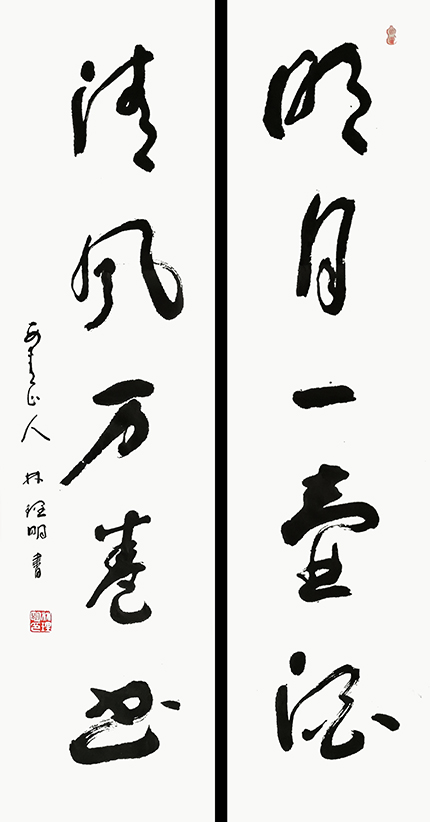 明月一壶酒
清风万卷书
人 林理明書